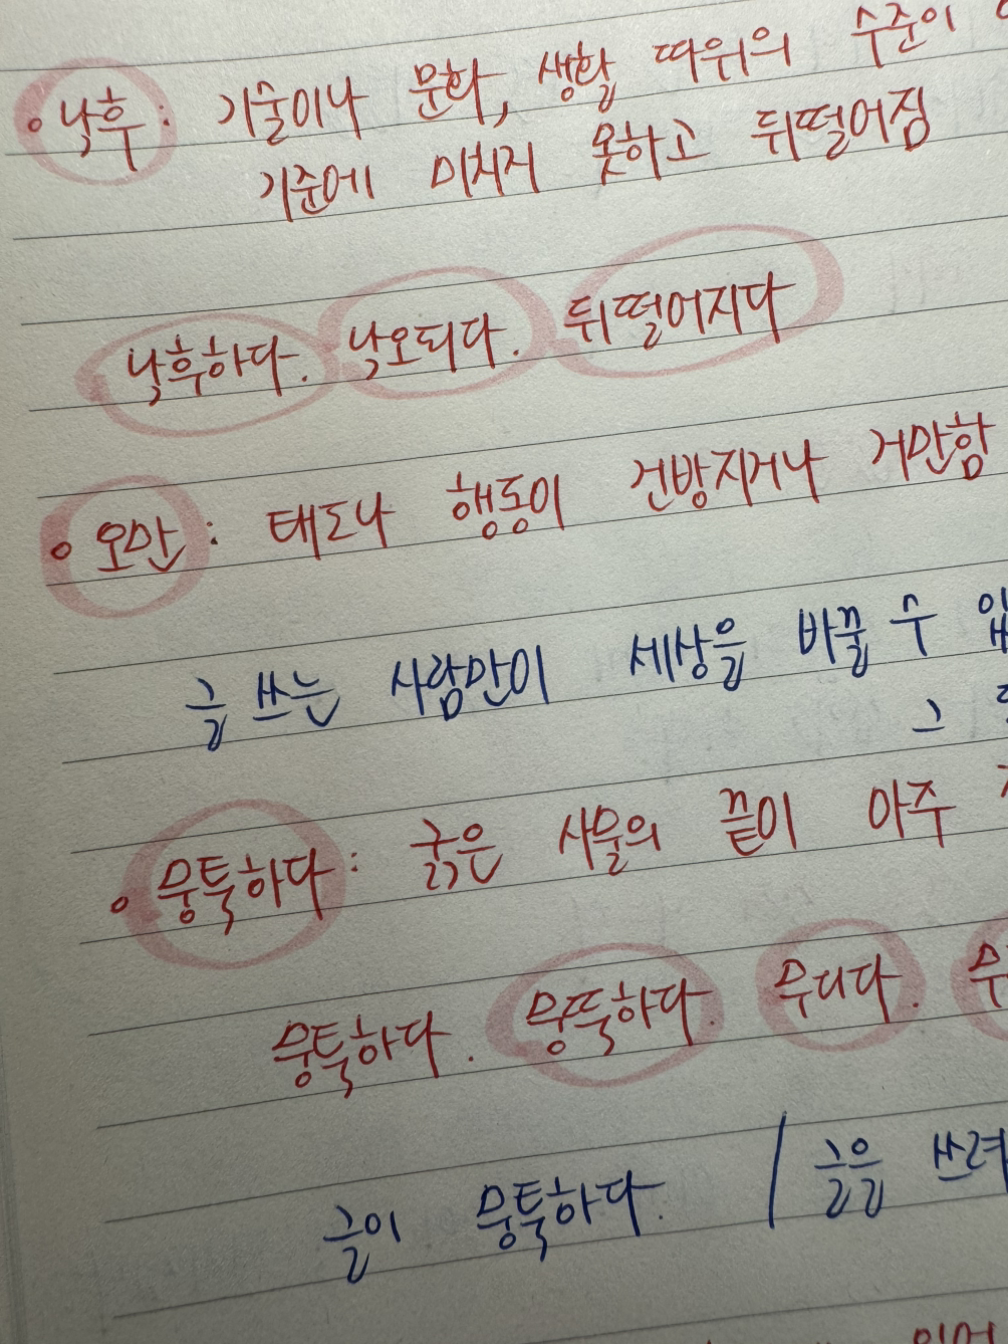 • 낙후 : 기술이나 문화, 생활 따위의 수준이
기준에 미치지 못하고 뒤떨어짐
낙후하다. 낙오되다. 뒤떨어지다
• 오만 : 태도나 행동이 건방지거나 거만함
글 쓰는 사람만이 세상을 바꿀 수
그
• 뭉툭하다 : 굵은 사물의 끝이 아주
뭉툭하다. 뭉뚝하다. 무디다.
글이 뭉툭하다. / 글을 쓰려